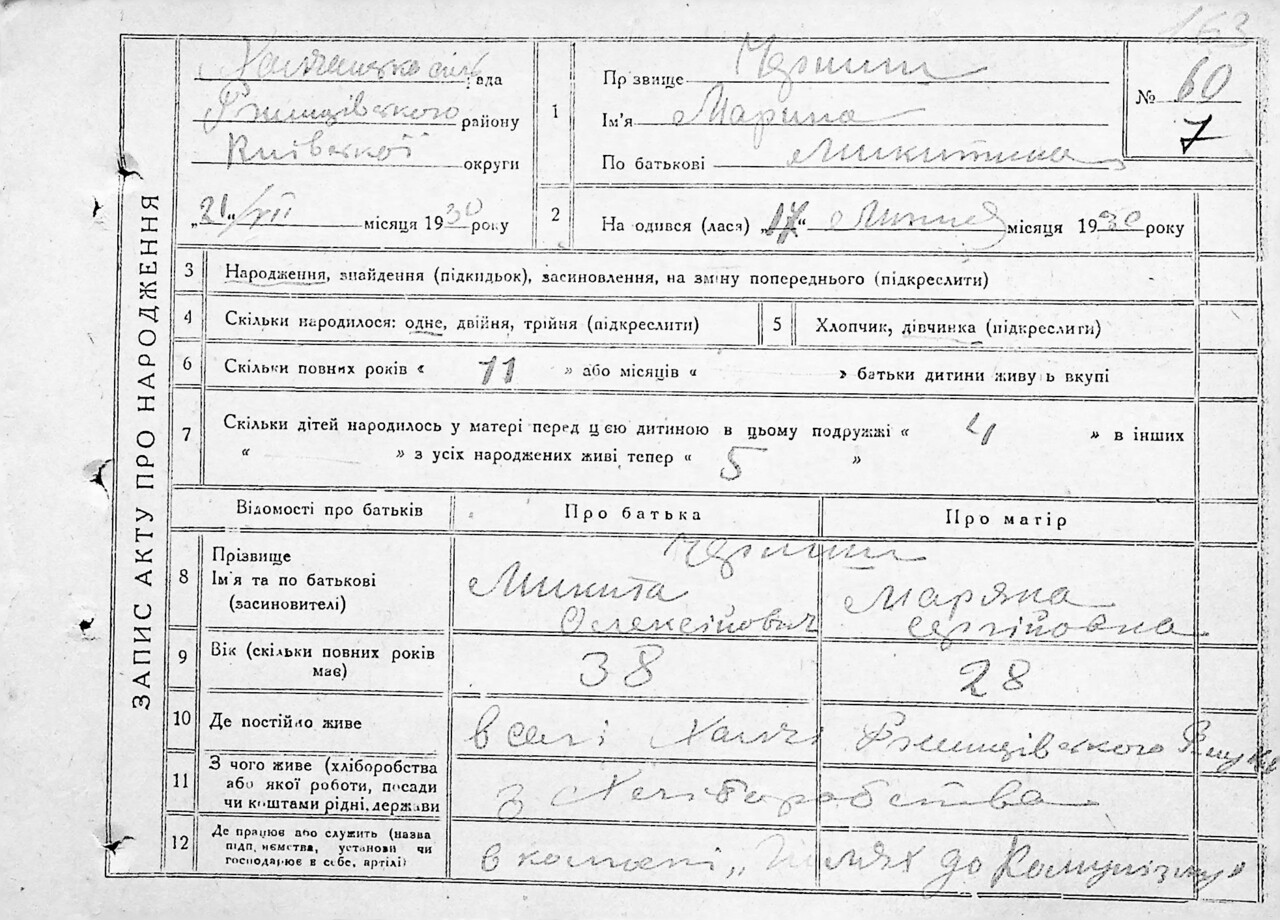 163
ЗАПИС АКТУ ПРО НАРОДЖЕННЯ
Халчанська сільрада
Ржищівського району
Київської округи
„21“/VII місяця 1930 року
1
Прізвище
Ім'я Марина
По батькові Микитина
№ 60
7
2 На одився (лася) „17“ Липня місяця 1930 року
3 Народження, знайдення (підкидьок), засиновлення, на зміну попереднього (підкреслити)
4 Скільки народилося: одне, двійня, трійня (підкреслити)
5 Хлопчик, дівчинка (підкреслити)
6 Скільки повних років « 11 » або місяців « » батьки дитини живуть вкупі
7 Скільки дітей народилось у матері перед цією дитиною в цьому подружжі « 4 » в інших
« » з усіх народжених живі тепер « 5 »
Відомості про батьків Про батька Про матір
8 Прізвище
Ім'я та по батькові
(засиновителі)
Микита
Олексійович
Маряна
Сергійовна
9 Вік (скільки повних років
має)
38 28
10 Де постійно живе в селі Халчі Ржищівського
11 З чого живе (хліборобства
або якої роботи, посади
чи коштами рідні, держави
З Хліборобства
12 Де працює або служить (назва
підприємства, установи чи
господарює в себе, артілі)
в „Шлях до Комунізму“